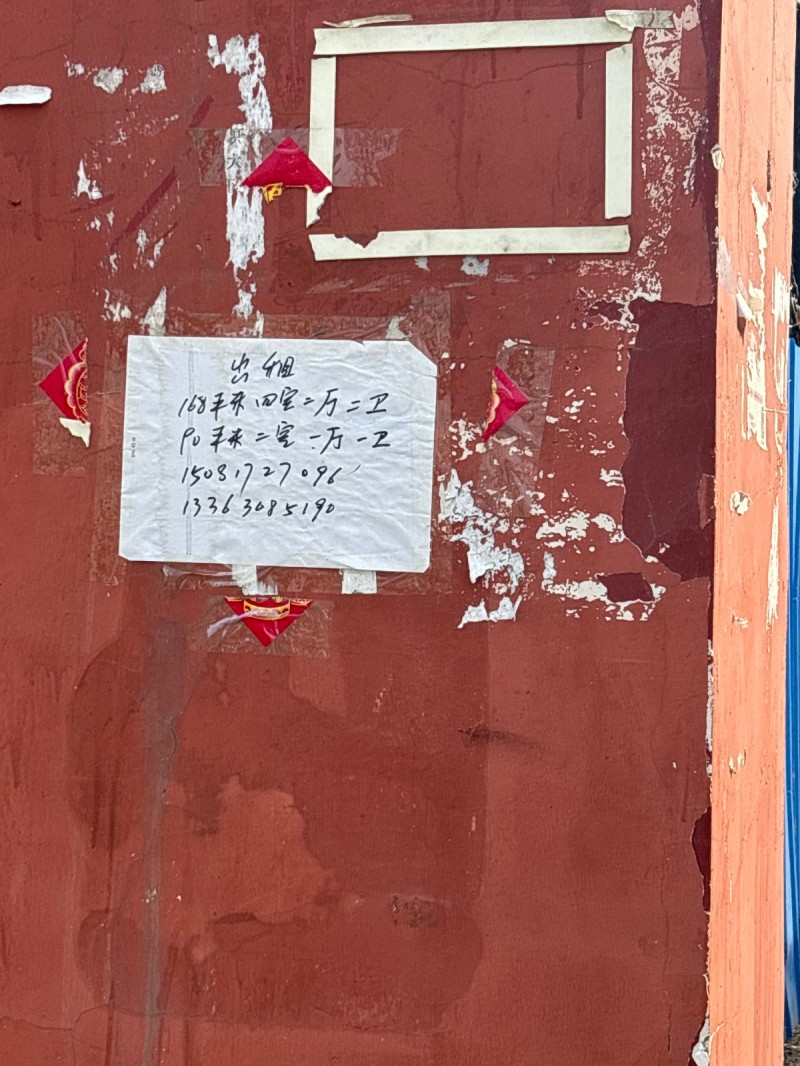 出租
168平米四室二厅二卫
90平米二室一厅一卫
15031727096
13363085190